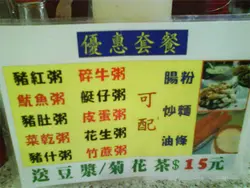 優惠套餐
豬紅粥 碎牛粥
魷魚粥 艇仔粥
豬肚粥 皮蛋粥
菜乾粥 花生粥
豬什粥 竹蔗粥
可配
腸粉
炒麵
油條
送豆漿/菊花茶$15元